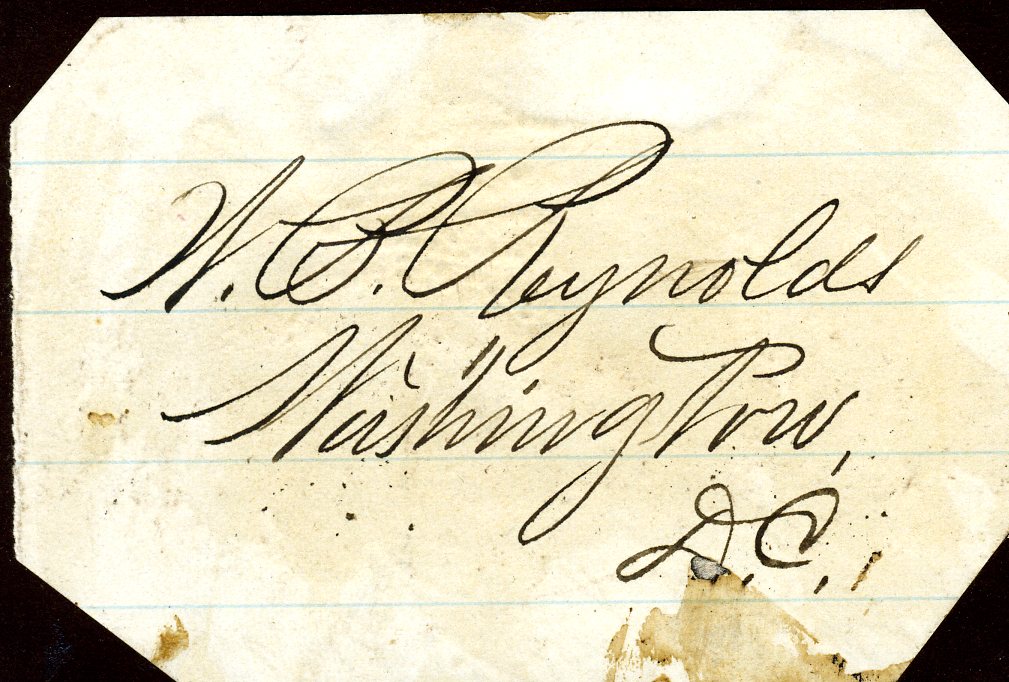 W. B. Reynolds
Washington,
D.C.,